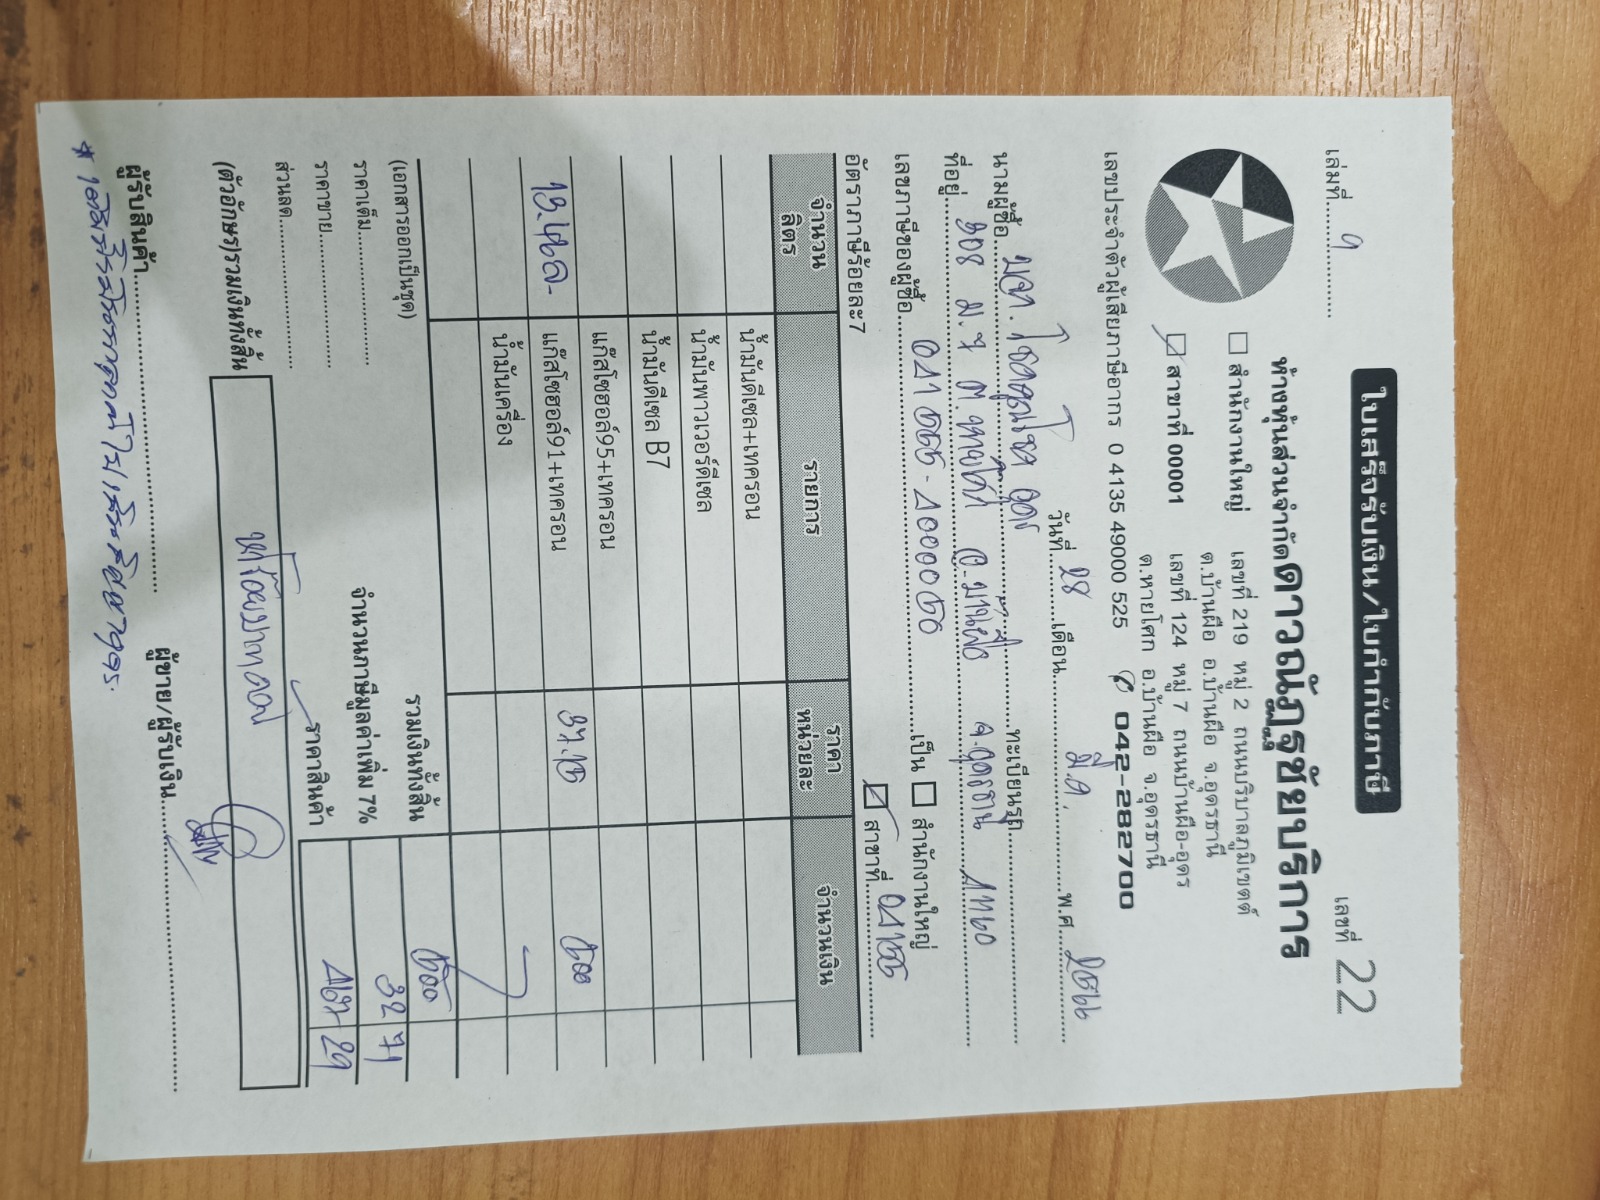 ใบเสร็จรับเงิน/ใบกำกับภาษี
เล่มที่ 9 เลขที่ 22
ห้างหุ้นส่วนจำกัดดาวณัฏฐชัยบริการ
สำนักงานใหญ่ เลขที่ 219 หมู่ 2 ถนนบริบาลภูมิเขตต์
ต.บ้านผือ อ.บ้านผือ จ.อุดรธานี
สาขาที่ 00001 เลขที่ 124 หมู่ 7 ถนนบ้านผือ-อุดร
ต.หายโศก อ.บ้านผือ จ.อุดรธานี
เลขประจำตัวผู้เสียภาษีอากร 0 4135 49000 525 ✆ 042-282700
วันที่ 28 เดือน มี.ค. พ.ศ. 2566
นามผู้ซื้อ ทะเบียนรถ
ที่อยู่ ม. 7 อ.บ้านผือ จ.อุดรธานี 41160
เลขภาษีของผู้ซื้อ เป็น สำนักงานใหญ่
อัตราภาษีร้อยละ7 สาขาที่
จำนวนลิตร รายการ ราคาหน่วยละ จำนวนเงิน
น้ำมันดีเซล+เทครอน
น้ำมันพาวเวอร์ดีเซล
น้ำมันดีเซล B7
แก๊สโซฮอล์95+เทครอน
แก๊สโซฮอล์91+เทครอน 37.15 500
น้ำมันเครื่อง
(เอกสารออกเป็นชุด) รวมเงินทั้งสิ้น 500
ราคาเต็ม จำนวนภาษีมูลค่าเพิ่ม 7% 32 71
ราคาขาย ราคาสินค้า 467 29
ส่วนลด
(ตัวอักษร)รวมเงินทั้งสิ้น ห้าร้อยบาทถ้วน
ผู้รับสินค้า ผู้ขาย/ผู้รับเงิน